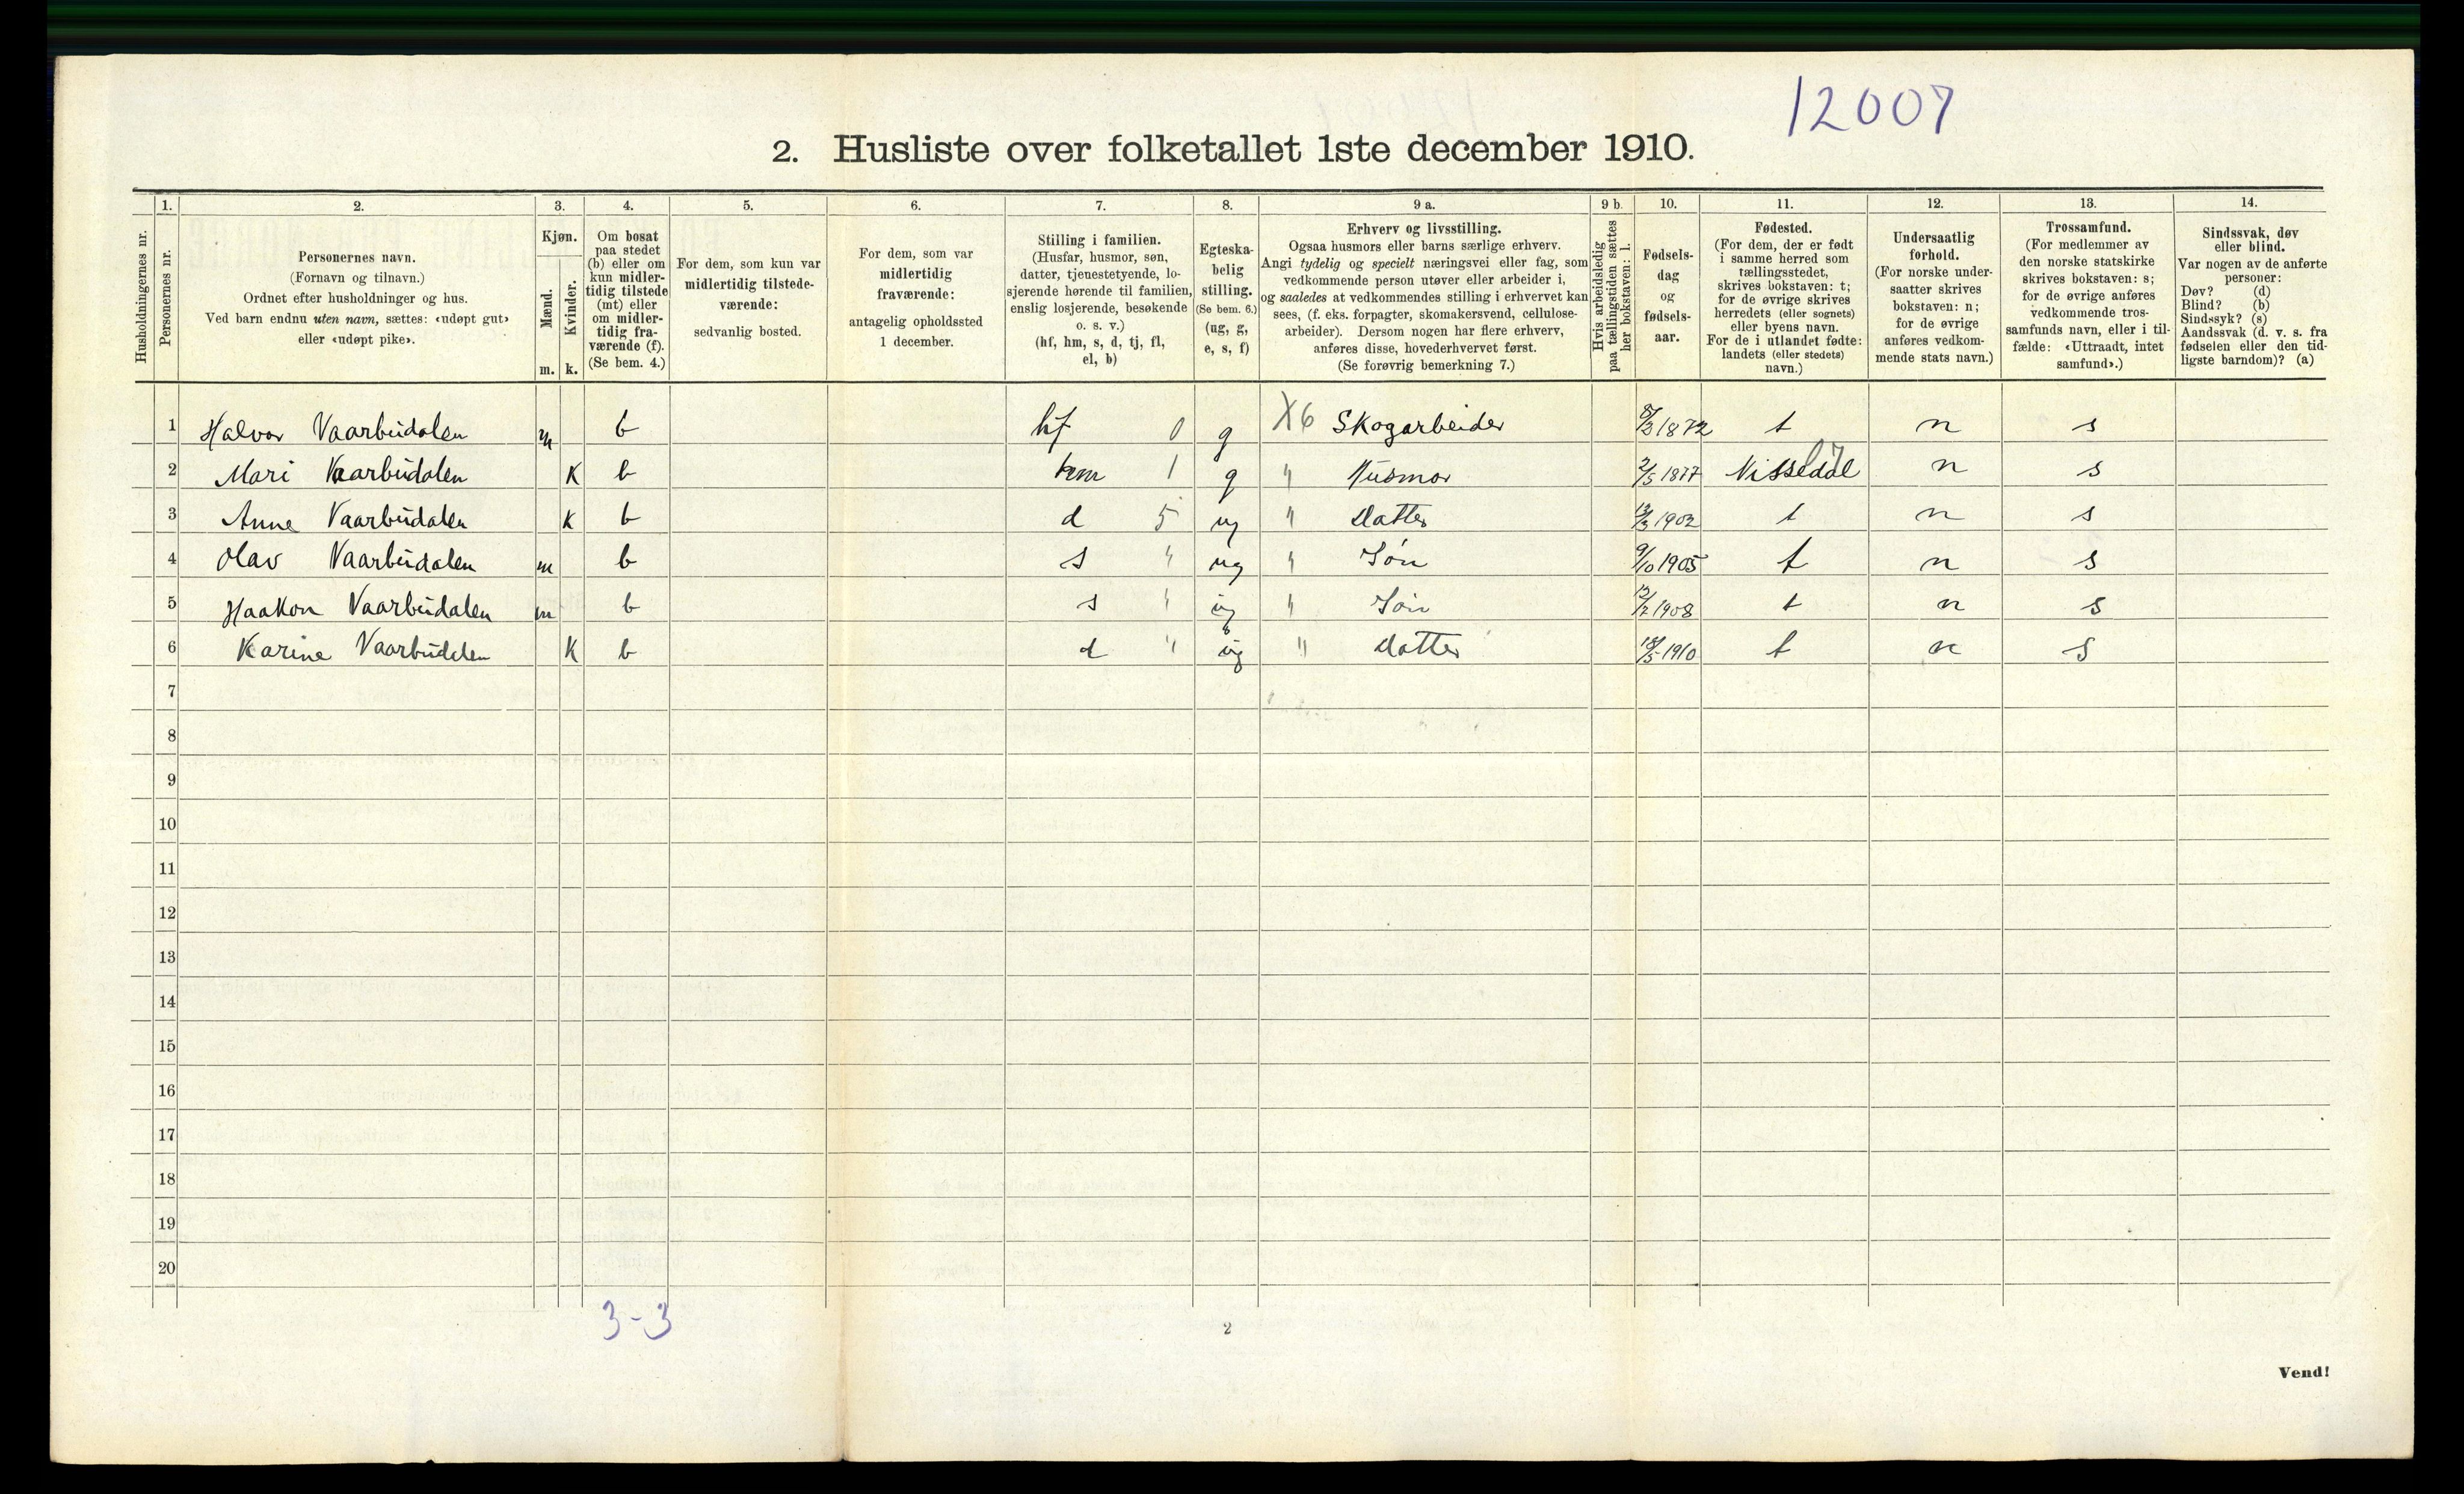 12007
2. Husliste over folketallet 1ste december 1910.
Husholdningernes nr.
1.
Personernes nr.
2.
Personernes navn.
(Fornavn og tilnavn.)
Ordnet efter husholdninger og hus.
Ved barn endnu uten navn, sættes: «udøpt gut»
eller «udøpt pike».
3.
Kjøn.
Mænd.
Kvinder.
m. k.
4.
Om bosat
paa stedet
(b) eller om
kun midler-
tidig tilstede
(mt) eller
om midler-
tidig fra-
værende (f).
(Se bem. 4.)
5.
For dem, som kun var
midlertidig tilstede-
værende:
sedvanlig bosted.
6.
For dem, som var
midlertidig
fraværende:
antagelig opholdssted
1 december.
7.
Stilling i familien.
(Husfar, husmor, søn,
datter, tjenestetyende, lo-
sjerende hørende til familien,
enslig losjerende, besøkende
o. s. v.)
(hf, hm, s, d, tj, fl,
el, b)
8.
Egteska-
belig
stilling.
(Se bem. 6.)
(ug, g,
e, s, f)
9 a.
Erhverv og livsstilling.
Ogsaa husmors eller barns særlige erhverv.
Angi tydelig og specielt næringsvei eller fag, som
vedkommende person utøver eller arbeider i,
og saaledes at vedkommendes stilling i erhvervet kan
sees, (f. eks. forpagter, skomakersvend, cellulose-
arbeider). Dersom nogen har flere erhverv,
anføres disse, hovederhvervet først.
(Se forøvrig bemerkning 7.)
9 b.
Hvis arbeidsledig
paa tællingstiden sættes
her bokstaven: l.
10.
Fødsels-
dag
og
fødsels-
aar.
11.
Fødested.
(For dem, der er født
i samme herred som
tællingsstedet,
skrives bokstaven: t;
for de øvrige skrives
herredets (eller sognets)
eller byens navn.
For de i utlandet fødte:
landets (eller stedets)
navn.)
12.
Undersaatlig
forhold.
(For norske under-
saatter skrives
bokstaven: n;
for de øvrige
anføres vedkom-
mende stats navn.)
13.
Trossamfund.
(For medlemmer av
den norske statskirke
skrives bokstaven: s;
for de øvrige anføres
vedkommende tros-
samfunds navn, eller i til-
fælde: «Uttraadt, intet
samfund».)
14.
Sindssvak, døv
eller blind.
Var nogen av de anførte
personer:
Døv? (d)
Blind? (b)
Sindssyk? (s)
Aandssvak (d. v. s. fra
fødselen eller den tid-
ligste barndom)? (a)
1 Halvor Vaarbudalen m b hf 0 g X6 Skogarbeider 8/3 1872 t n s
2 Mari Vaarbudalen K b hm 1 g " Husmor 2/5 1877 Nissedal n s
3 Anne Vaarbudalen K b d 5 ug " Datter 1902 t n s
4 Olav Vaarbudalen m b s " ug " Søn 9/10 1905 t n s
5 Haakon Vaarbudalen m b s " ug " Søn 1908 t n s
6 Karine Vaarbudalen K b d " ug " Datter 1910 t n s
7
8
9
10
11
12
13
14
15
16
17
18
19
20
3-3
2
Vend!